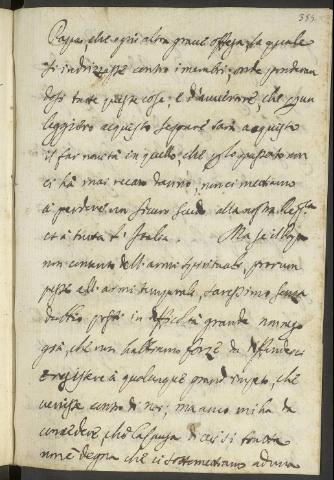 353
Papa, che ogni altra grave offesa, la quale
si indrizzasse contro i membri, onde ponderan
dosi tutte queste cose, e d'avvertire che ogn
leggiero acquisto
il far novità in quello, che per lo passato non
ci hà mai recato danno, non ci mettiamo
à perdere un sicuro scudo alla nostra
et à tutta l'Italia. Ma se il Papa
non contento dell'armi spirituali, prorum
pesse all'armi temporali, saressimo senza
dubbio posti in difficoltà grande non nego
già, che non habbiamo forze da diffenderci
e resistere à qualunque grand'impeto, che
venisse contro di noi, ma anco mi hà da
concedere, che la causa di cui si tratta
non è degna che ci mettiamo ad una